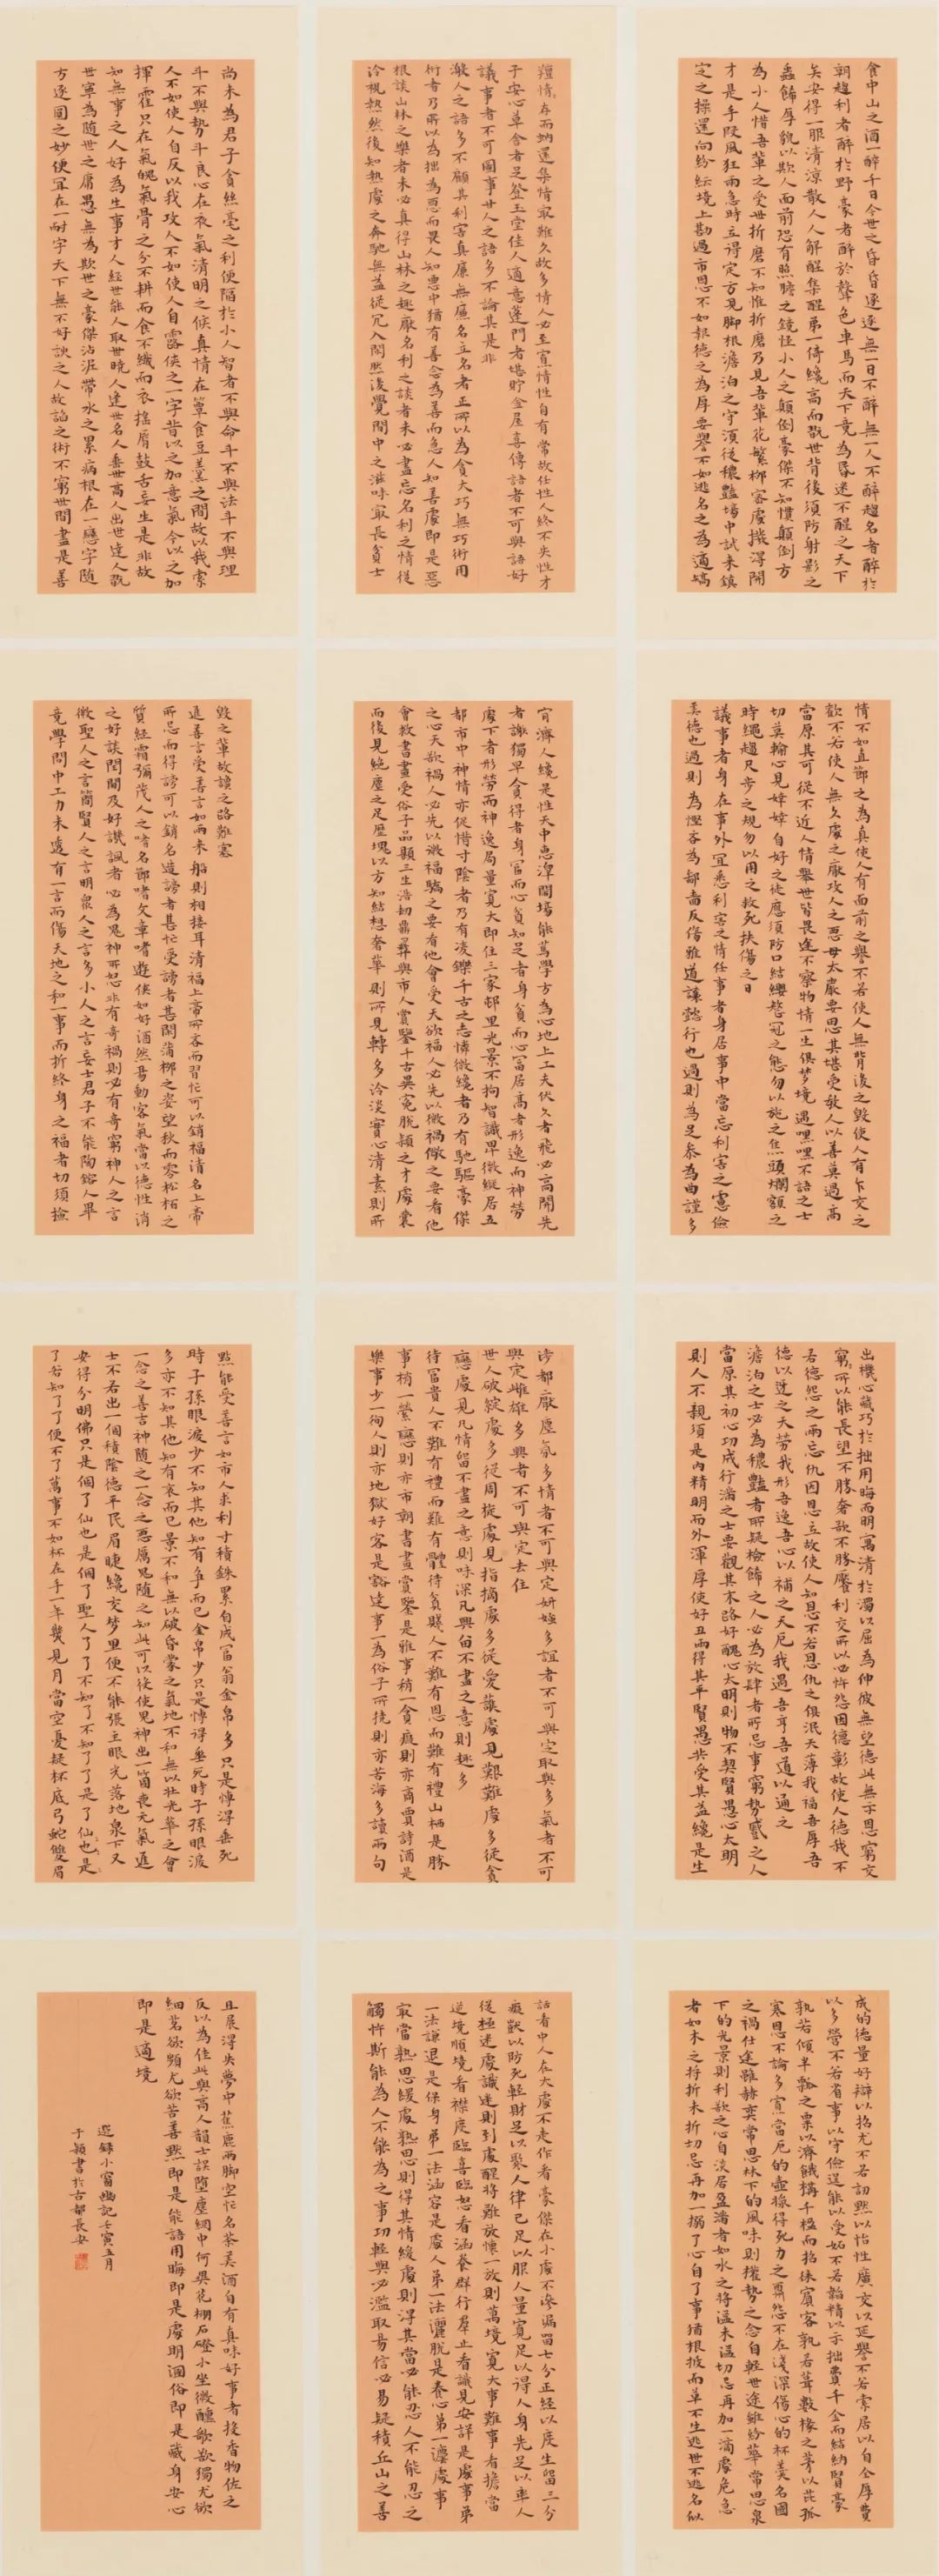 食中山之酒一醉千日今世之昏昏逐逐無一日不醉無一人不醉趨名者醉於
朝趨利者醉於野豪者醉於聲色車馬而天下竟為昏迷不醒之天下
矣安得一服清涼散人人解醒集醒第一倚纔高而翫世背後須防射影之
蟲飾厚貌以欺人面前恐有照膽之鏡怪小人之顛倒豪傑不知慣顛倒方
為小人惜吾輩之受世折磨不知惟折磨乃見吾輩花繁柳密處撥得開
才是手段風狂雨急時立得定方見腳根澹泊之守須從穠豔場中試來鎮
定之操還向紛紜境上勘過市恩不如報德之為厚要譽不如逃名之為適矯
情不如直節之為真使人有面前之譽不若使人無背後之毀使人有乍交之
歡不若使人無久處之厭攻人之惡毋太嚴要思其堪受教人以善莫過高
當原其可從不近人情舉世皆畏途不察物情一生俱夢境遇嘿嘿不語之士
切莫輸心見悻悻自好之徒應須防口結纓整冠之態勿以施之焦頭爛額之
時繩趨尺步之規勿以用之救死扶傷之日
議事者身在事外宜悉利害之情任事者身居事中當忘利害之慮儉
美德也過則為慳吝為鄙嗇反傷雅道讓懿行也過則為足恭為曲謹多
出機心藏巧於拙用晦而明寓清於濁以屈為伸彼無望德此無示恩窮交
窮所以能長望不勝奢欲不勝饜利交所以必忤怨因德彰故使人德我不
若德怨之兩忘仇因恩立故使人知恩不若恩仇之俱泯天薄我福吾厚吾
德以迓之天勞我形吾逸吾心以補之天厄我遇吾亨吾道以通之
澹泊之士必為穠豔者所疑檢飾之人必為放肆者所忌事窮勢蹙之人
當原其初心功成行滿之士要觀其末路好醜心太明則物不契賢愚心太明
則人不親須是內精明而外渾厚使好丑兩得其平賢愚共受其益纔是生
成的德量好辯以招尤不若訒默以怡性廣交以延譽不若索居以自全厚費
以多營不若省事以守儉逞能以受妬不若韜精以示拙費千金而結納賢豪
孰若傾半瓢之粟以濟餓構千楹而招徠賓客孰若葺數椽之茅以庇孤
寒恩不論多寡當厄的壺漿得死力之酬怨不在淺深傷心的杯羹召亡國
之禍仕途雖赫奕常思林下的風味則權勢之念自輕世途雖紛華常思泉
下的光景則利欲之心自淡居盈滿者如水之將溢未溢切忌再加一滴處危急
者如木之將折未折切忌再加一搦了心自了事猶根拔而草不生逃世不逃名似
羶情存而蚋還集情最難久故多情人必至寡情性自有常故任性人終不失性才
子安心草舍者足登玉堂佳人適意蓬門者堪貯金屋喜傳語者不可與語好
議事者不可圖事世人之語多不論其是非
激人之語多不顧其利害真廉無廉名立名者正所以為貪大巧無巧術用
術者乃所以為拙為惡而畏人知惡中猶有善念為善而急人知善處即是惡
根談山林之樂者未必真得山林之趣厭名利之談者未必盡忘名利之情從
冷視熱然後知熱處之奔馳無益從冗入閒然後覺閒中之滋味最長貧士
肯濟人纔是性天中惠澤閙場能篤學方為心地上工夫伏久者飛必高開先
者謝獨早貪得者身富而心貧知足者身貧而心富居高者形逸而神勞
處下者形勞而神逸局量寬大即住三家邨里光景不拘智識卑微縱居五
都市中神情亦促惜寸陰者乃有凌鑠千古之志憐微纔者乃有馳驅豪傑
之心天欲禍人必先以微福驕之要看他會受天欲福人必先以微禍儆之要看他
會救書畫受俗子品題三生浩劫鼎彝與市人賞鑒千古異寃脫穎之才處囊
而後見絕塵之足歷塊以方知結想奢華則所見轉多冷淡實心清素則所
涉都厭塵氛多情者不可與定妍媸多誼者不可與定取與多氣者不可
與定雌雄多興者不可與定去住
世人破綻處多從周旋處見指摘處多從愛護處見艱難處多從貪
戀處見凡情留不盡之意則味深凡興留不盡之意則趣多
待富貴人不難有禮而難有體待貧賤人不難有恩而難有禮山栖是勝
事稍一縈戀則亦市朝書畫賞鑒是雅事稍一貪癡則亦商賈詩酒是
樂事少一徇人則亦地獄好客是豁達事一為俗子所撓則亦苦海多讀兩句
話看中人在大處不走作看豪傑在小處不滲漏留七分正經以度生留三分
癡獃以防死輕財足以聚人律己足以服人量寬足以得人身先足以率人
從極迷處識迷則到處醒將難放懷一放則萬境寬大事難事看擔當
逆境順境看襟度臨喜臨怒看涵養群行羣止看識見安詳是處事第
一法謙退是保身第一法涵容是處人第一法灑脫是養心第一法處事
最當熟思緩處熟思則得其情緩處則得其當必能忍人不能忍之
觸忤斯能為人不能為之事功輕與必濫取易信必易疑積丘山之善
尚未為君子貪絲毫之利便陷於小人智者不與命斗不與法斗不與理
斗不與勢斗良心在夜氣清明之候真情在簞食豆羹之間故以我索
人不如使人自反以我攻人不如使人自露俠之一字昔以之加意氣今以之加
揮霍只在氣魄氣骨之分不耕而食不織而衣搖脣鼓舌妄生是非故
知無事之人好為生事才人經世能人取世曉人逢世名人垂世高人出世達人翫
世寧為隨世之庸愚無為欺世之豪傑沾泥帶水之累病根在一戀字隨
方逐圓之妙便宜在一耐字天下無不好諛之人故諂之術不窮世間盡是善
毀之輩故讒之路難塞
進善言受善言如兩來船則相接耳清福上帝所吝而習忙可以銷福清名上帝
所忌而得謗可以銷名造謗者甚忙受謗者甚閒蒲柳之姿望秋而零松柏之
質經霜彌茂人之嗜名節嗜文章嗜遊俠如好酒然易動客氣當以德性消
之好談閨閫及好譏諷者必為鬼神所怒非有奇禍則必有奇窮神人之言
微聖人之言簡賢人之言明眾人之言多小人之言妄士君子不能陶鎔人畢
竟學問中工力未透有一言而傷天地之和一事而折終身之福者切須撿
點能受善言如市人求利寸積銖累自成富翁金帛多只是博得垂死
時子孫眼淚少不知其他知有爭而已金帛少只是博得垂死時子孫眼淚
多亦不知其他知有哀而已景不和無以破昏蒙之氣地不和無以壯光華之會
一念之善吉神隨之一念之惡厲鬼隨之知此可以役使鬼神出一箇喪元氣進
士不若出一個積陰德平民眉睫纔交夢里便不能張主眼光落地泉下又
安得分明佛只是個了仙也是個了聖人了了不知了不知了了是了仙也是
了若知了了便不了萬事不如杯在手一年幾見月當空憂疑杯底弓蛇雙眉
且展得失夢中蕉鹿兩腳空忙名茶美酒自有真味好事者投香物佐之
反以為佳此與高人韻士誤墮塵網中何異花棚石磴小坐微醺歌欲獨尤欲
細茗欲頻尤欲苦善默即是能語用晦即是處明溷俗即是藏身安心
即是適境
選錄小窗幽記壬寅五月
子穎書於古都長安